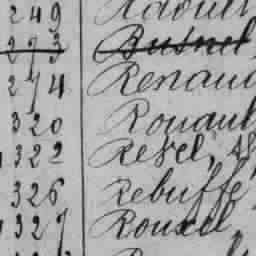 249 Raoult
273 Busnel
274 Renaud
320 Rouault
322 Revel, As
326 Rebuffé
327 Rouxel,